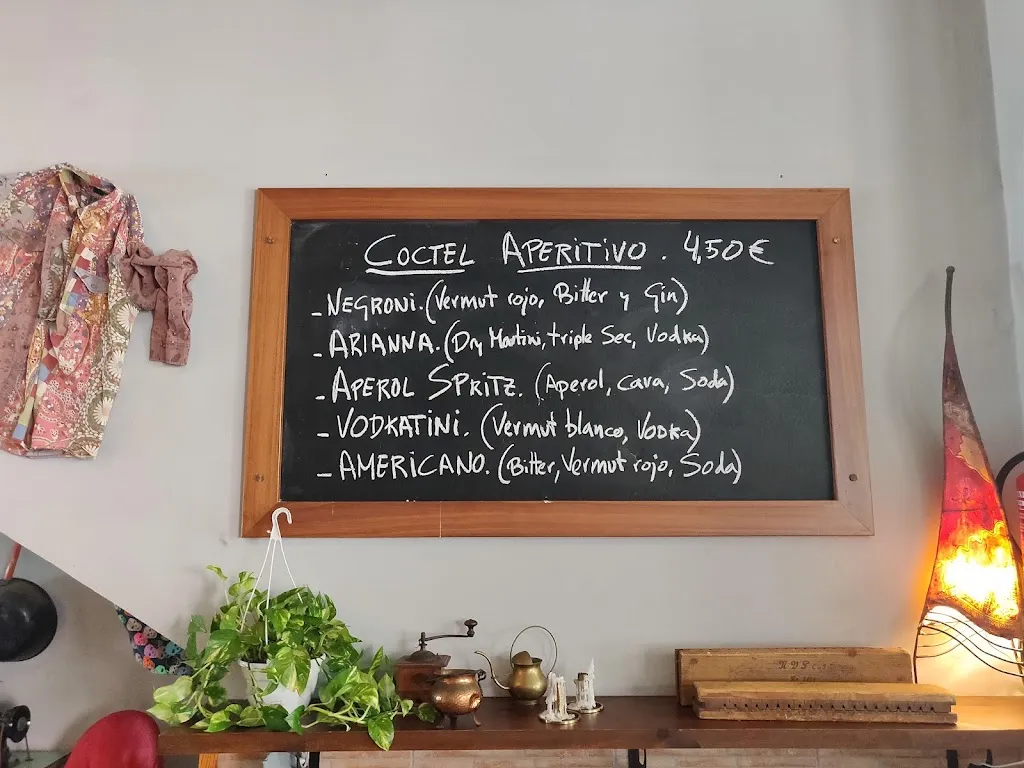 COCTEL APERITIVO. 4,50€
- NEGRONI. (Vermut rojo, Bitter y Gin)
- ARIANNA. (Dry Martini, triple Sec, Vodka)
- APEROL SPRITZ. (Aperol, cava, Soda)
- VODKATINI. (Vermut blanco, Vodka)
- AMERICANO. (Bitter, Vermut rojo, Soda)